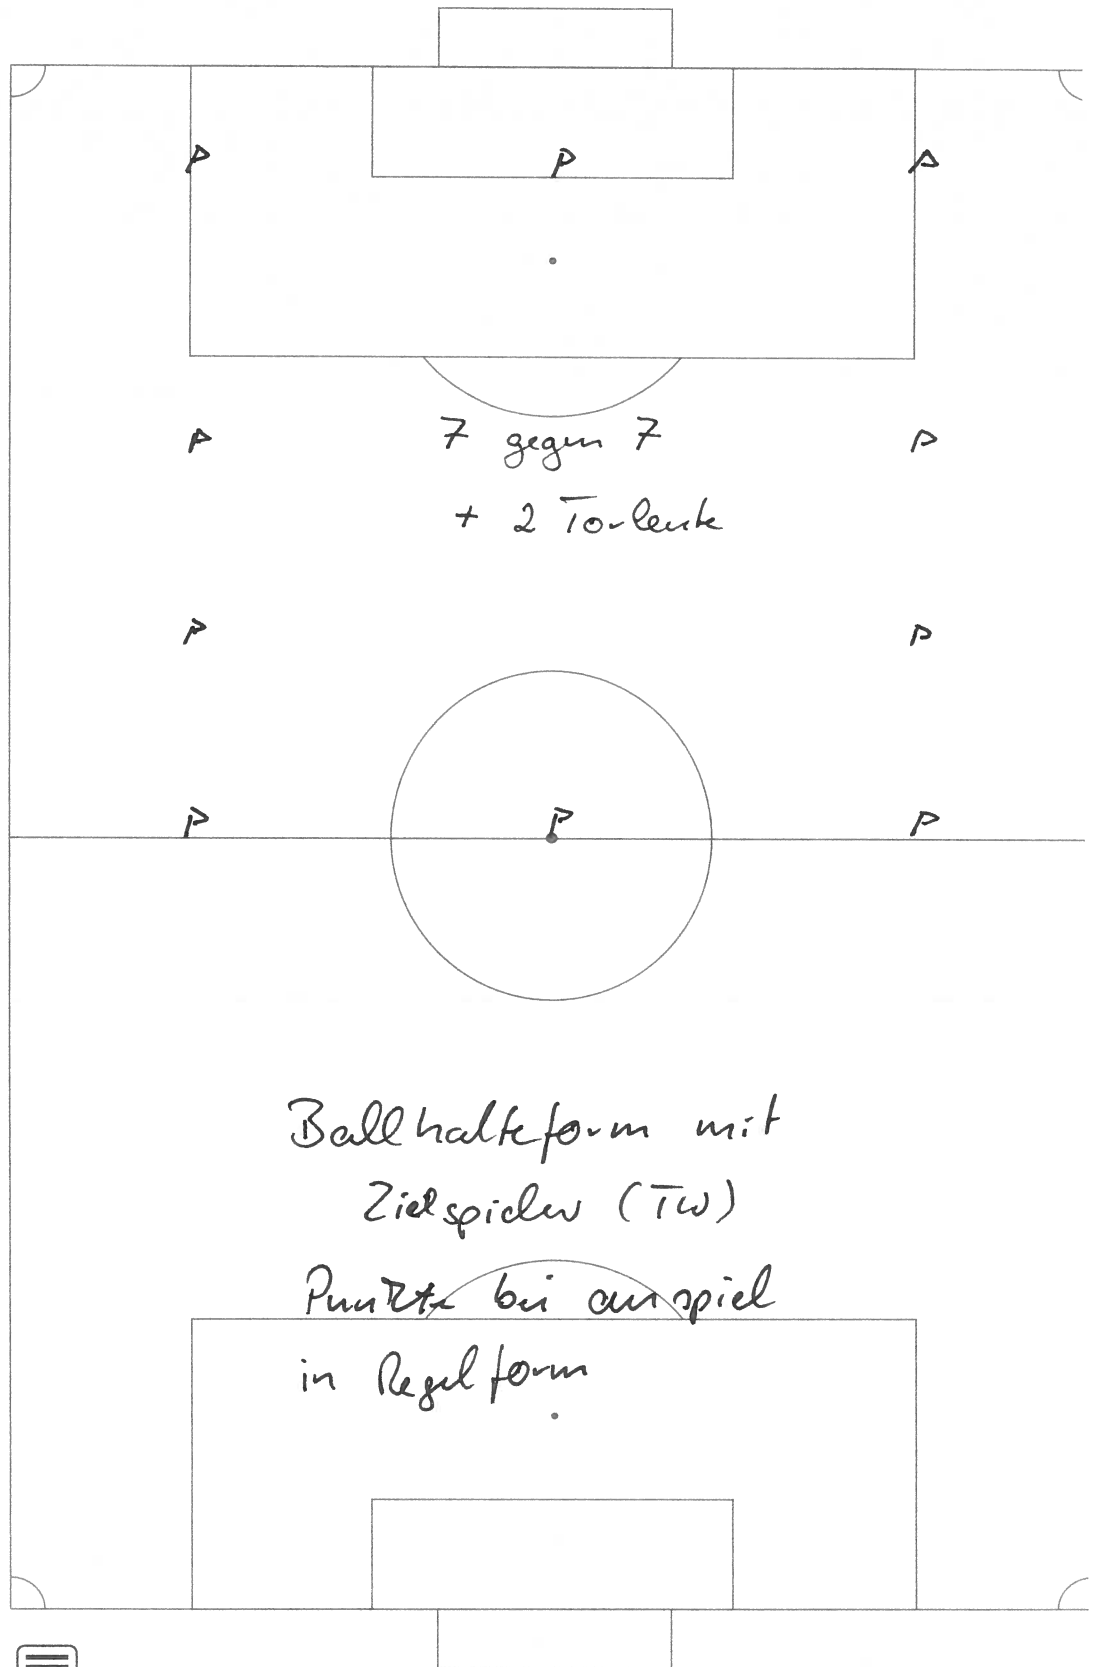 7 gegen 7
+ 2 Torleute
Ballhalteform mit
Zielspieler (TW)
Punkte bei anspiel
in Regelform